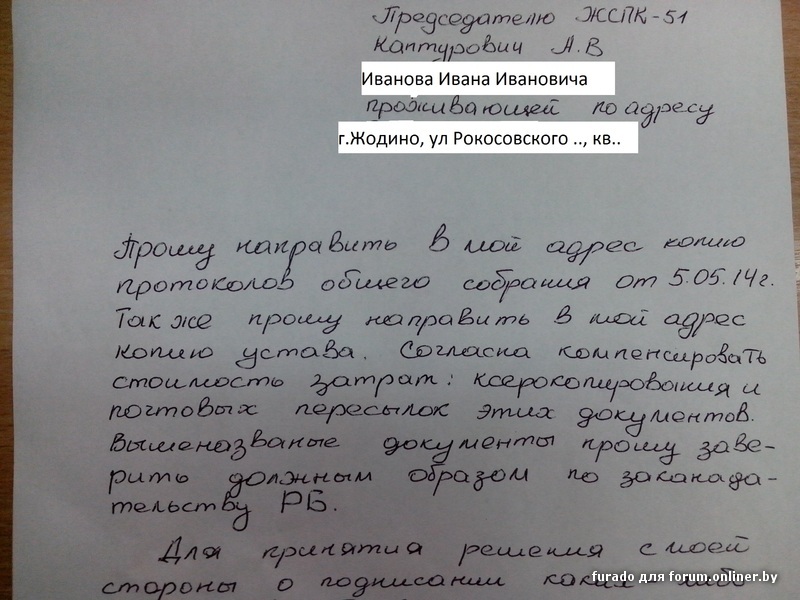 Председателю ЖСПК-51
Каптурович А.В
Иванова Ивана Ивановича
проживающей по адресу
г.Жодино, ул Рокосовского .., кв..
Прошу направить в мой адрес копию
протоколов общего собрания от 5.05.14г.
Так же прошу направить в мой адрес
копию устава. Согласна компенсировать
стоимость затрат: ксерокопирования и
почтовых пересылок этих документов.
Вышеназваные документы прошу заве-
рить должным образом по законада-
тельству РБ.
Для принятия решения с моей
стороны о подписании каких либо
furado для forum.onliner.by